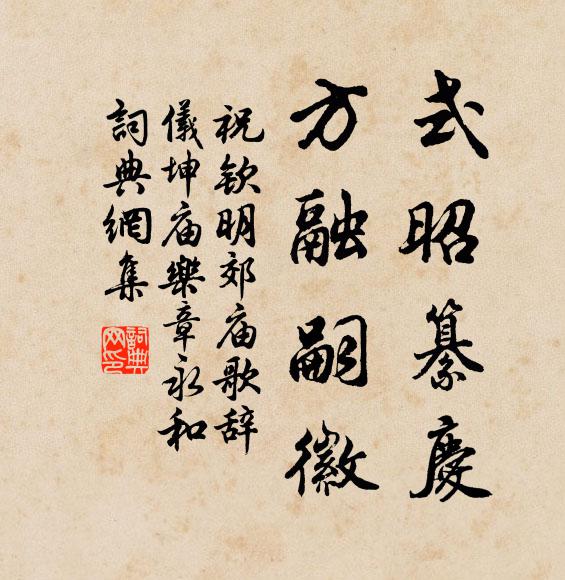 式昭纂慶
方融嗣徽
祝钦明郊庙歌辞
儀坤庙樂章永和
詞典網集
詞典网印